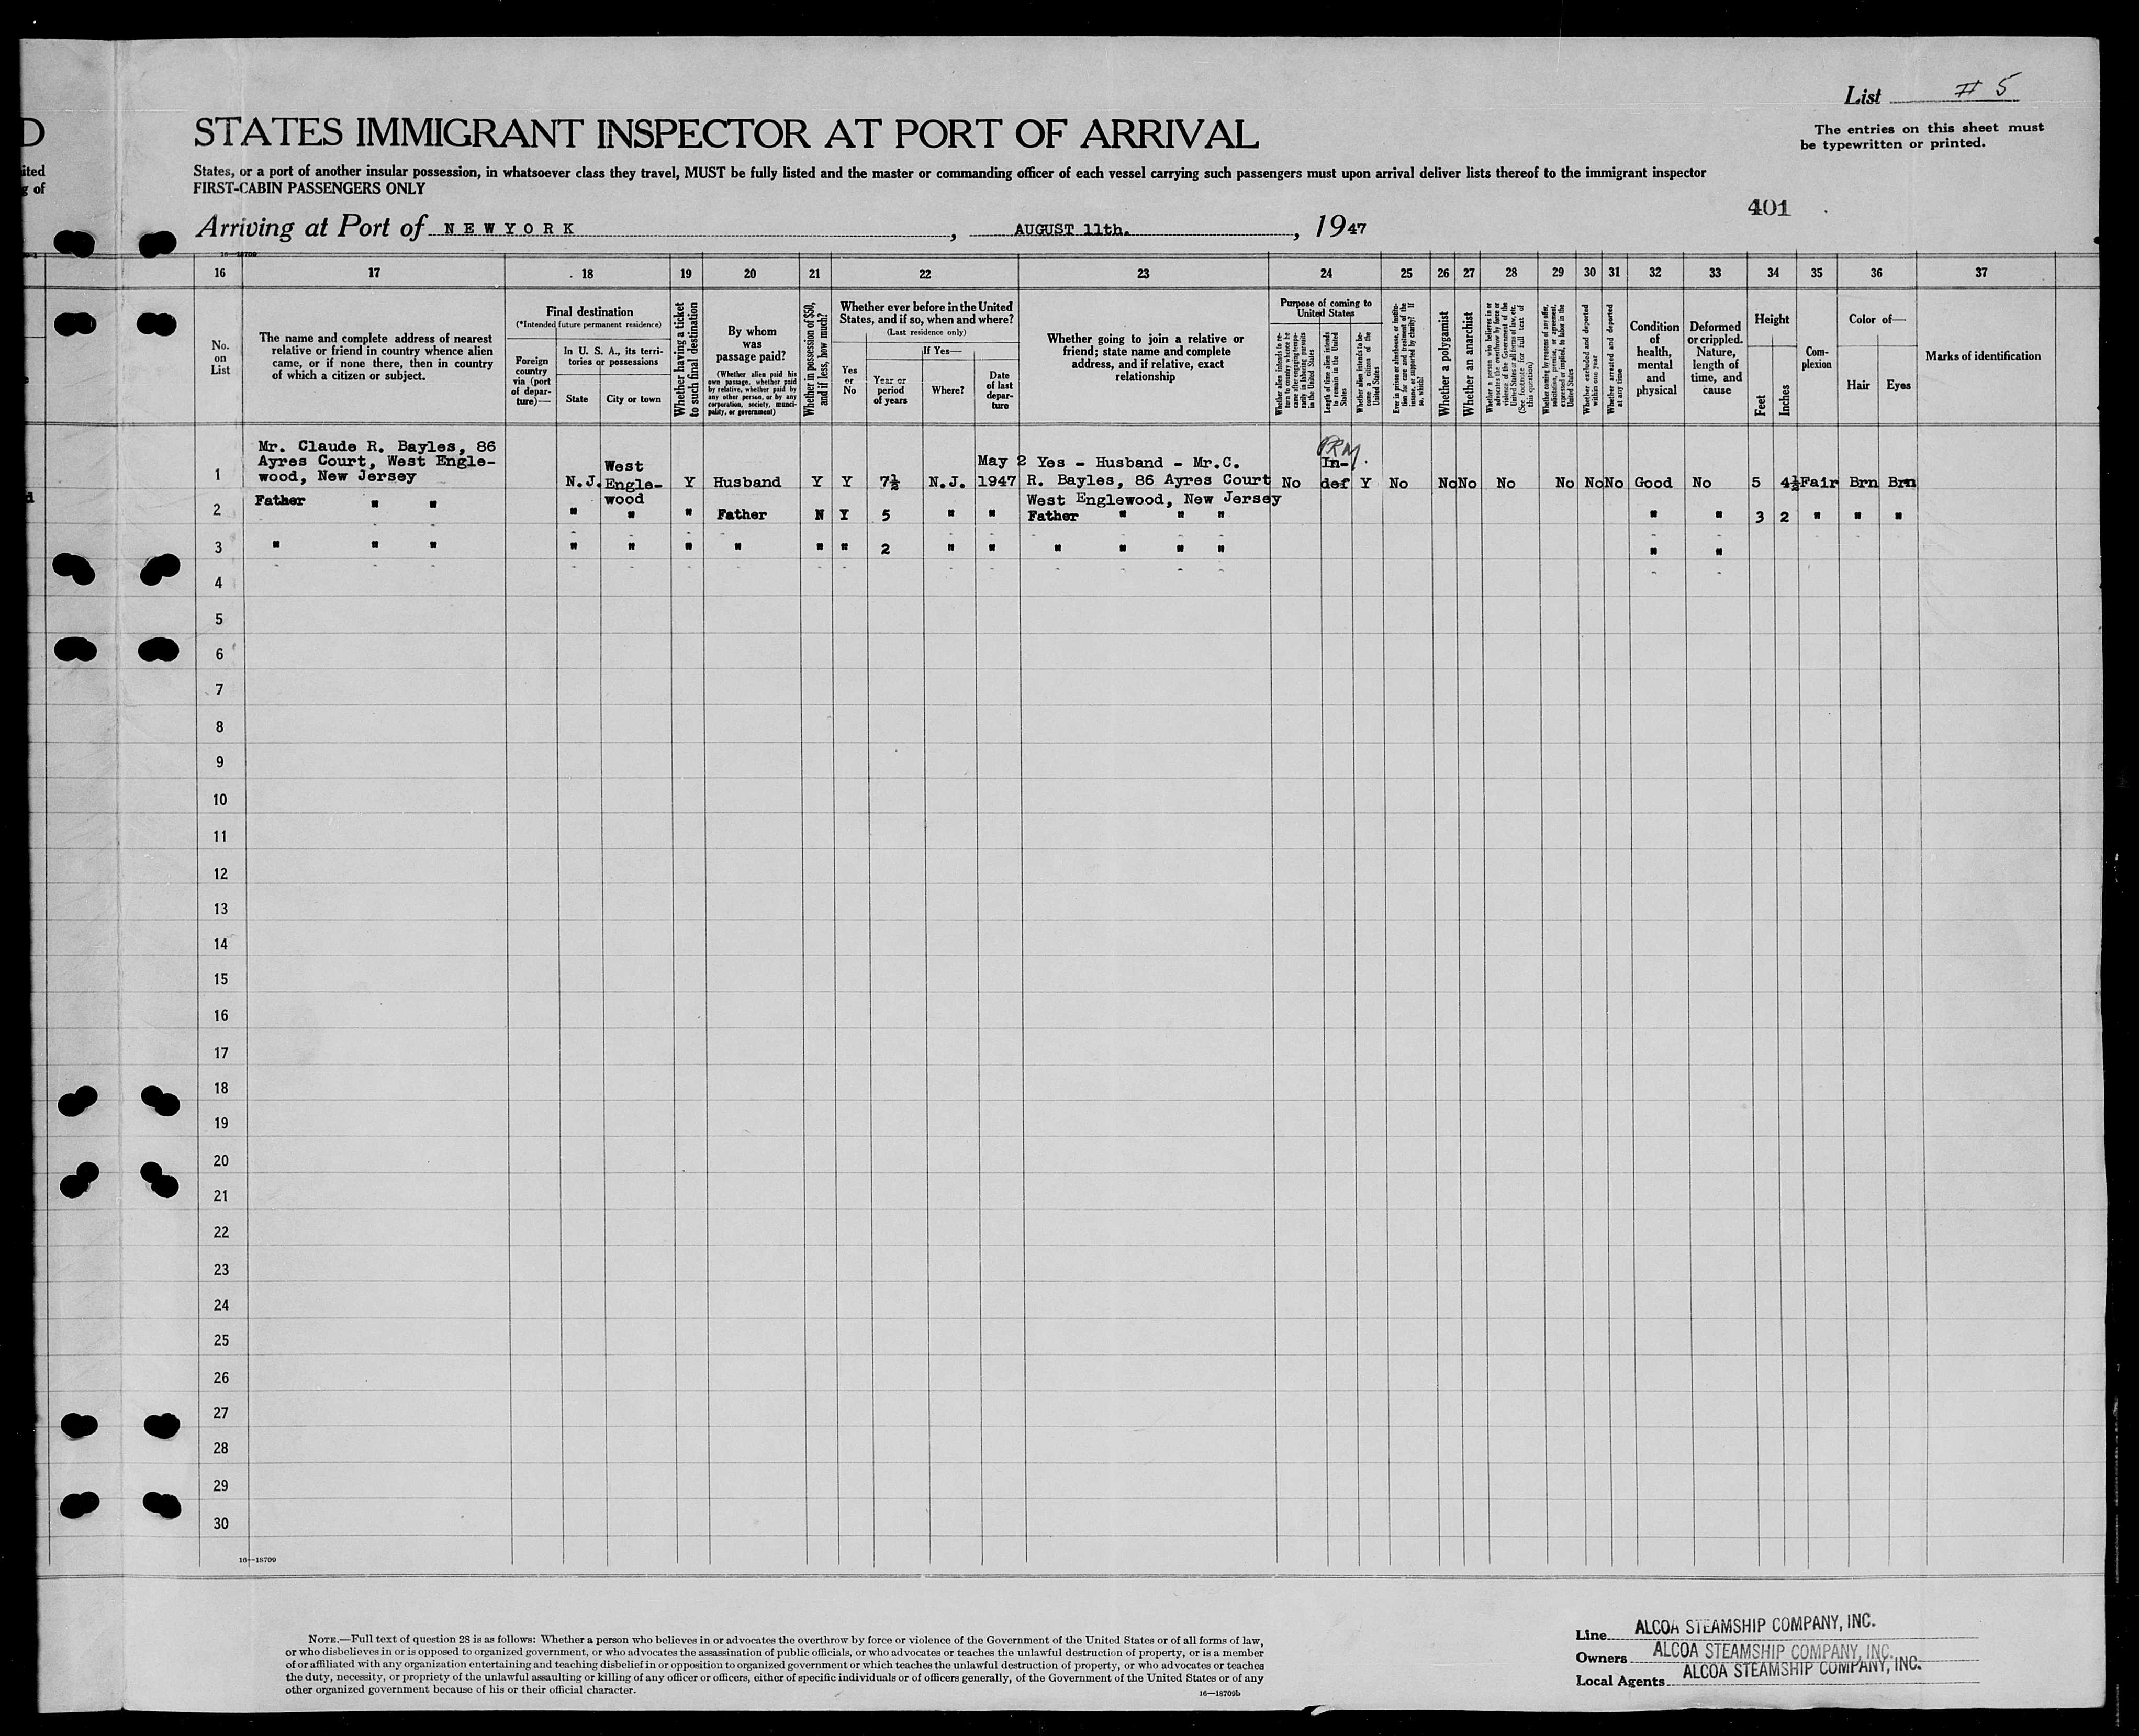 List # 5
D
STATES IMMIGRANT INSPECTOR AT PORT OF ARRIVAL
The entries on this sheet must
be typewritten or printed.
ited
g of
States, or a port of another insular possession, in whatsoever class they travel, MUST be fully listed and the master or commanding officer of each vessel carrying such passengers must upon arrival deliver lists thereof to the immigrant inspector
FIRST-CABIN PASSENGERS ONLY
401
Arriving at Port of N E W Y O R K , AUGUST 11th. , 1947
16—18709
16 17 18 19 20 21 22 23 24 25 26 27 28 29 30 31 32 33 34 35 36 37
No.
on
List
The name and complete address of nearest
relative or friend in country whence alien
came, or if none there, then in country
of which a citizen or subject.
Final destination
(*Intended future permanent residence)
Foreign
country
via (port
of depar-
ture)—
In U. S. A., its terri-
tories or possessions
State
City or town
Whether having a ticket
to such final destination
By whom
was
passage paid?
(Whether alien paid his
own passage, whether paid
by relative, whether paid by
any other person, or by any
corporation, society, munici-
pality, or government)
Whether in possession of $50,
and if less, how much?
Whether ever before in the United
States, and if so, when and where?
(Last residence only)
Yes
or
No
If Yes—
Year or
period
of years
Where?
Date
of last
depar-
ture
Whether going to join a relative or
friend; state name and complete
address, and if relative, exact
relationship
Purpose of coming to
United States
Whether alien intends to re-
turn to country whence he
came after engaging tempo-
rarily in laboring pursuits
in the United States
Length of time alien intends
to remain in the United
States
Whether alien intends to be-
come a citizen of the
United States
Ever in prison or almshouse, or institu-
tion for care and treatment of the
insane, or supported by charity? If
so, which?
Whether a polygamist
Whether an anarchist
Whether a person who believes in or
advocates the overthrow by force or
violence of the Government of the
United States or all forms of law, etc.
(See footnote for full text of
this question)
Whether coming by reasons of any offer,
solicitation, promise, or agreement,
expressed or implied, to labor in the
United States
Whether excluded and deported
within one year
Whether arrested and deported
at any time
Condition
of
health,
mental
and
physical
Deformed
or crippled.
Nature,
length of
time, and
cause
Height
Feet
Inches
Com-
plexion
Color of—
Hair
Eyes
Marks of identification
1 Mr. Claude R. Bayles, 86
Ayres Court, West Engle-
wood, New Jersey
N.J.
West
Engle-
wood
Y Husband Y Y 7½ N.J.
May 2
1947
Yes - Husband - Mr.C.
R. Bayles, 86 Ayres Court
West Englewood, New Jersey
No
PRM.
In-
def
Y No No No No No No No Good No 5 4½ Fair Brn Brn
2 Father " " " " " Father N Y 5 " " Father " " " " " 3 2 " " "
3 " " " " " " " " " 2 " " " " " " " "
4
5
6
7
8
9
10
11
12
13
14
15
16
17
18
19
20
21
22
23
24
25
26
27
28
29
30
16—18709
NOTE.—Full text of question 28 is as follows: Whether a person who believes in or advocates the overthrow by force or violence of the Government of the United States or of all forms of law,
or who disbelieves in or is opposed to organized government, or who advocates the assassination of public officials, or who advocates or teaches the unlawful destruction of property, or is a member
of or affiliated with any organization entertaining and teaching disbelief in or opposition to organized government or which teaches the unlawful destruction of property, or who advocates or teaches
the duty, necessity, or propriety of the unlawful assaulting or killing of any officer or officers, either of specific individuals or of officers generally, of the Government of the United States or of any
other organized government because of his or their official character.
16—18709b
Line ALCOA STEAMSHIP COMPANY, INC.
Owners ALCOA STEAMSHIP COMPANY, INC.
Local Agents ALCOA STEAMSHIP COMPANY, INC.